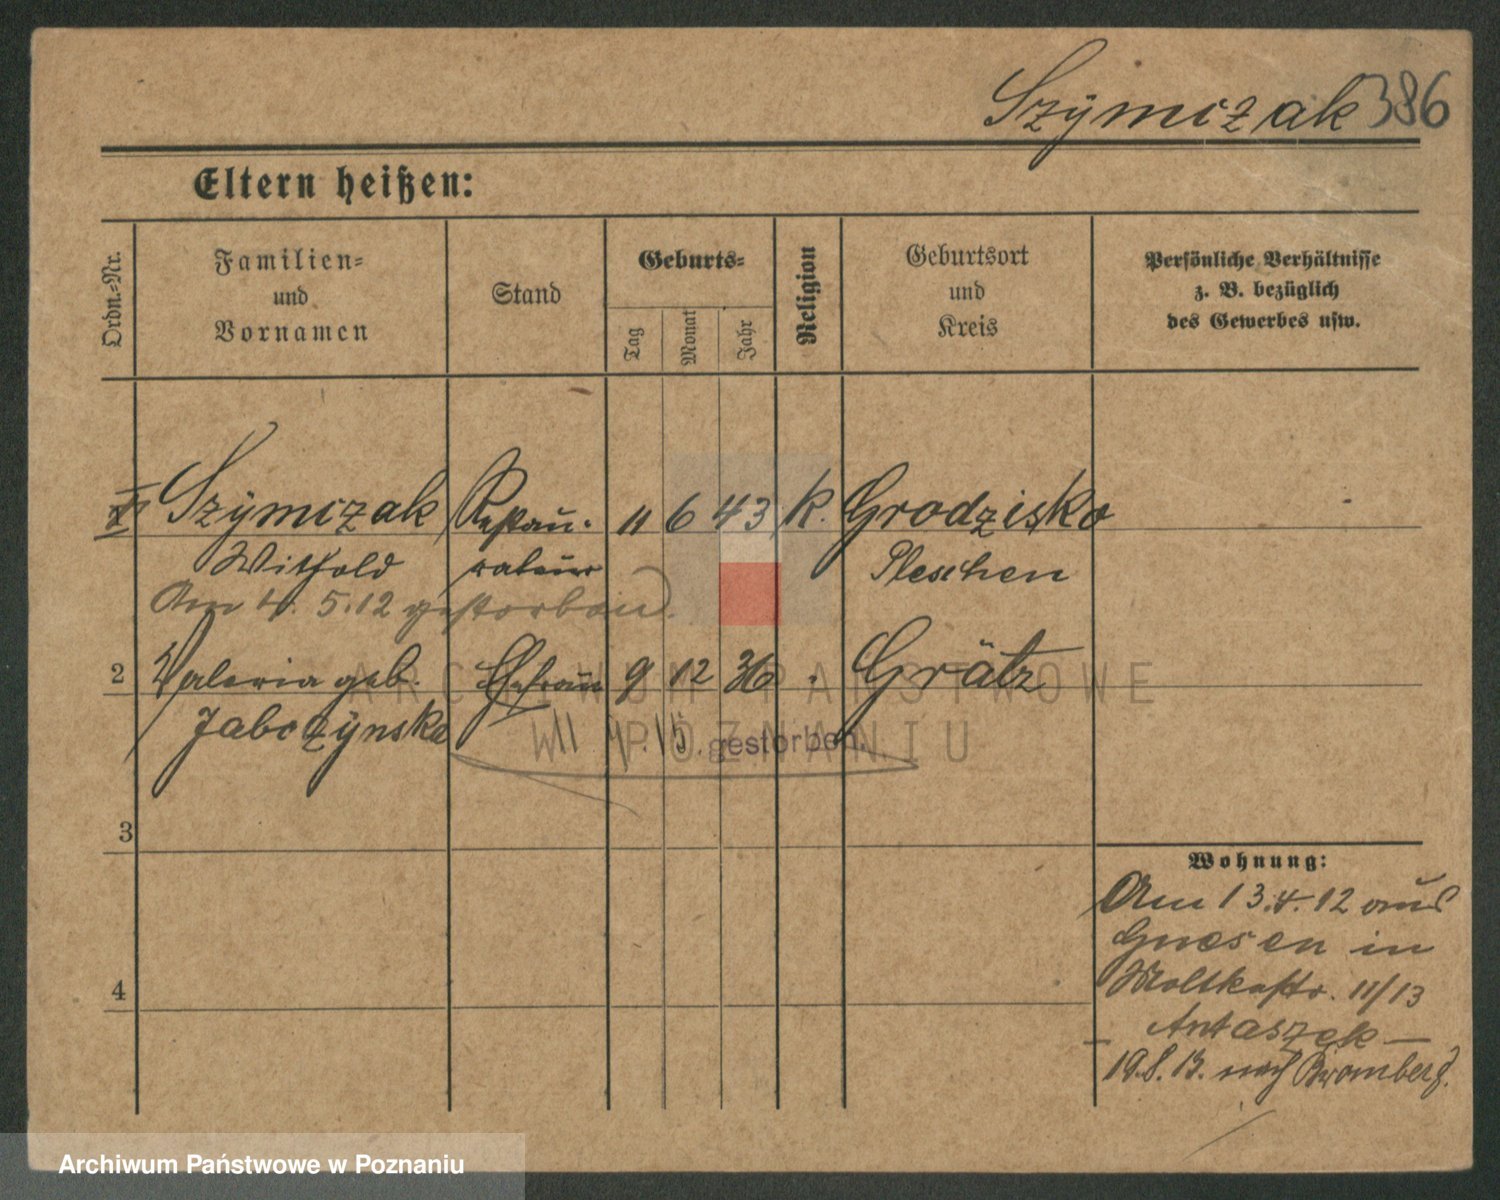 Szymczak 386
Eltern heißen:
Ordn.-Nr.
Familien-
und
Vornamen
Stand
Geburts-
Tag
Monat
Jahr
Religion
Geburtsort
und
Kreis
Persönliche Verhältnisse
z. B. bezüglich
des Gewerbes usw.
Szymczak Restau- 11 6 43 k. Grodzisko
Withold rateur Pleschen
Am 5.12 gestorben.
2 Valeria geb. Ehefrau 9 12 36 Grätz
Jabczynska
gestorben.
3
4
Wohnung:
Am 13.4.12 aus
Gnesen in
Moltkestr. 11/13
Antaszek —
19.8.13. nach Bromberg.
ARCHIWUM PAŃSTWOWE
W POZNANIU
Archiwum Państwowe w Poznaniu